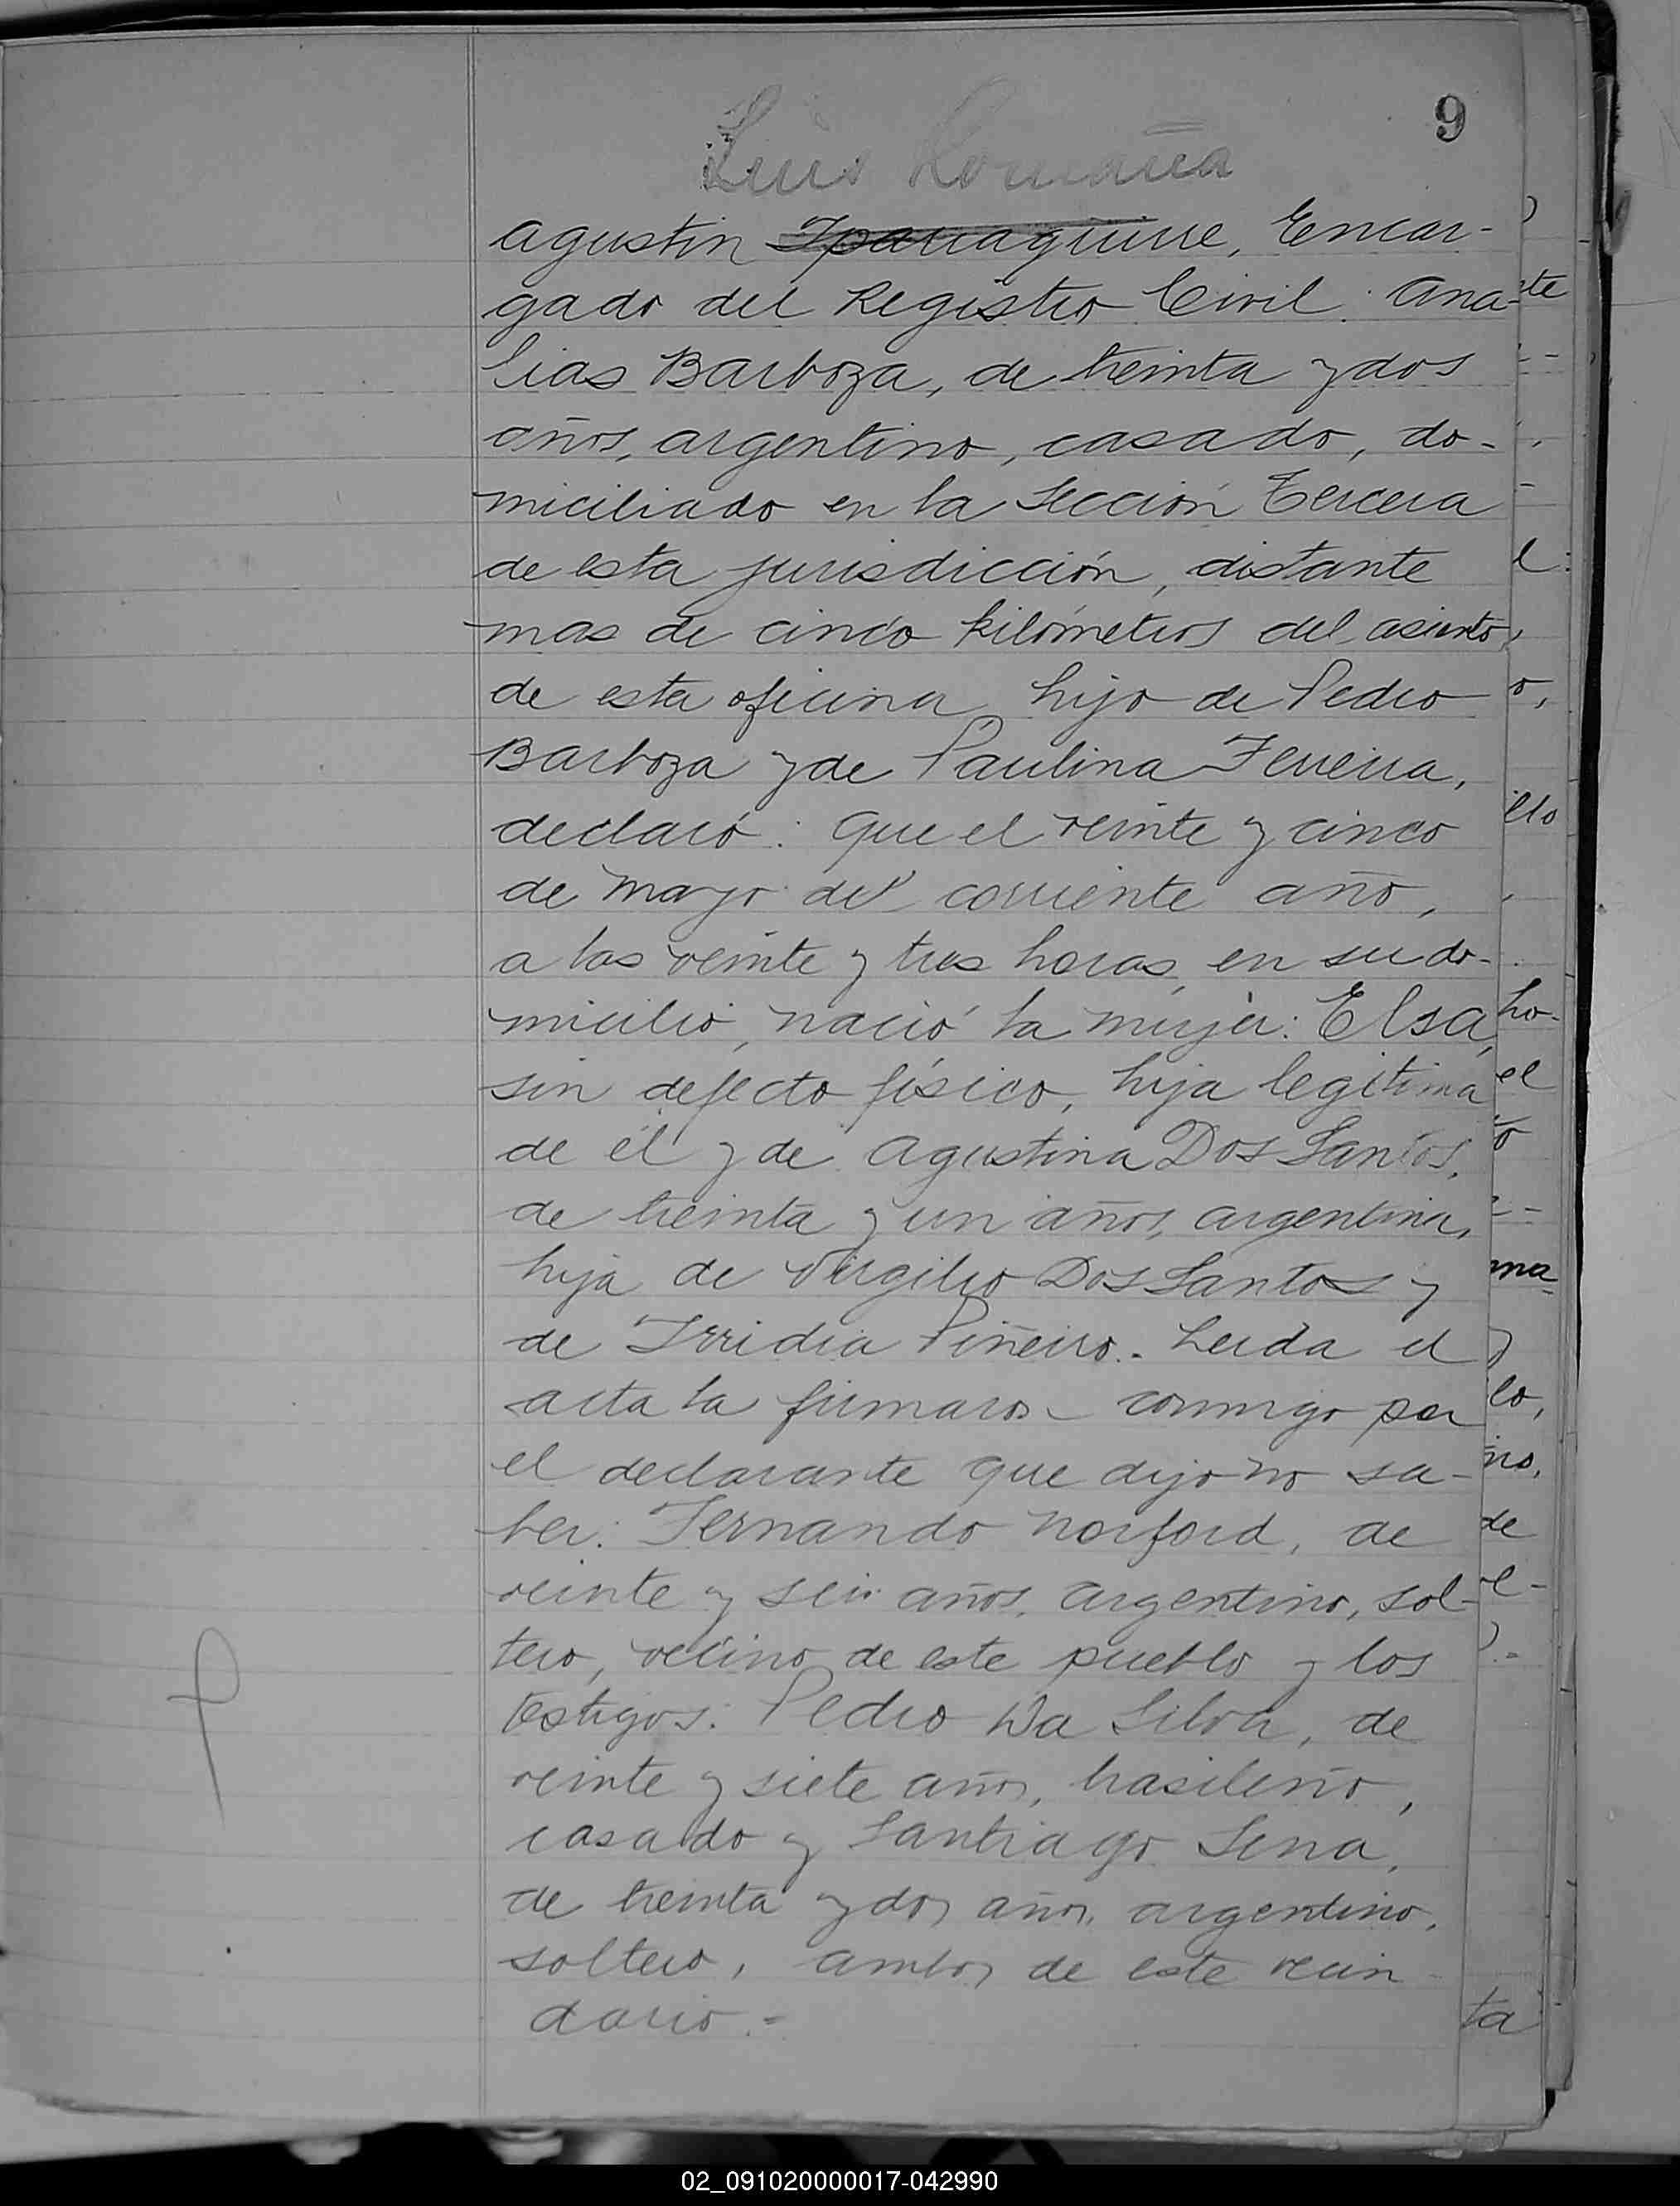 9
Luis Romaña
Agustin Iparraguirre, Encar-
gado del Registro Civil: Ana-
lias Barboza, de treinta y dos
años, argentino, casado, do-
miciliado en la Sección Tercera
de esta jurisdicción, distante
mas de cinco kilómetros del asiento
de esta oficina, hijo de Pedro
Barboza y de Paulina Ferreira,
declaró: Que el veinte y cinco
de Mayo del corriente año,
a las veinte y tres horas, en su do-
micilio, nació la mujer: Elsa,
sin defecto físico, hija legítima
de él y de Agustina Dos Santos,
de treinta y un años, argentina,
hija de Virgilio Dos Santos y
de Irridia Piñeiro.- Leida el
acta la firmaron conmigo por
el declarante que dijo no sa-
ber: Fernando Norford, de
veinte y seis años, argentino, sol-
tero, vecino de este pueblo y los
testigos: Pedro Da Silva, de
veinte y siete años, brasileño,
casado y Santiago Sena,
de treinta y dos años, argentino,
soltero, ambos de este vecin-
dario.-
te
l
o,
llo
ho-
el
to
ma-
lo,
no,
de
ve-
ta
02_091020000017-042990